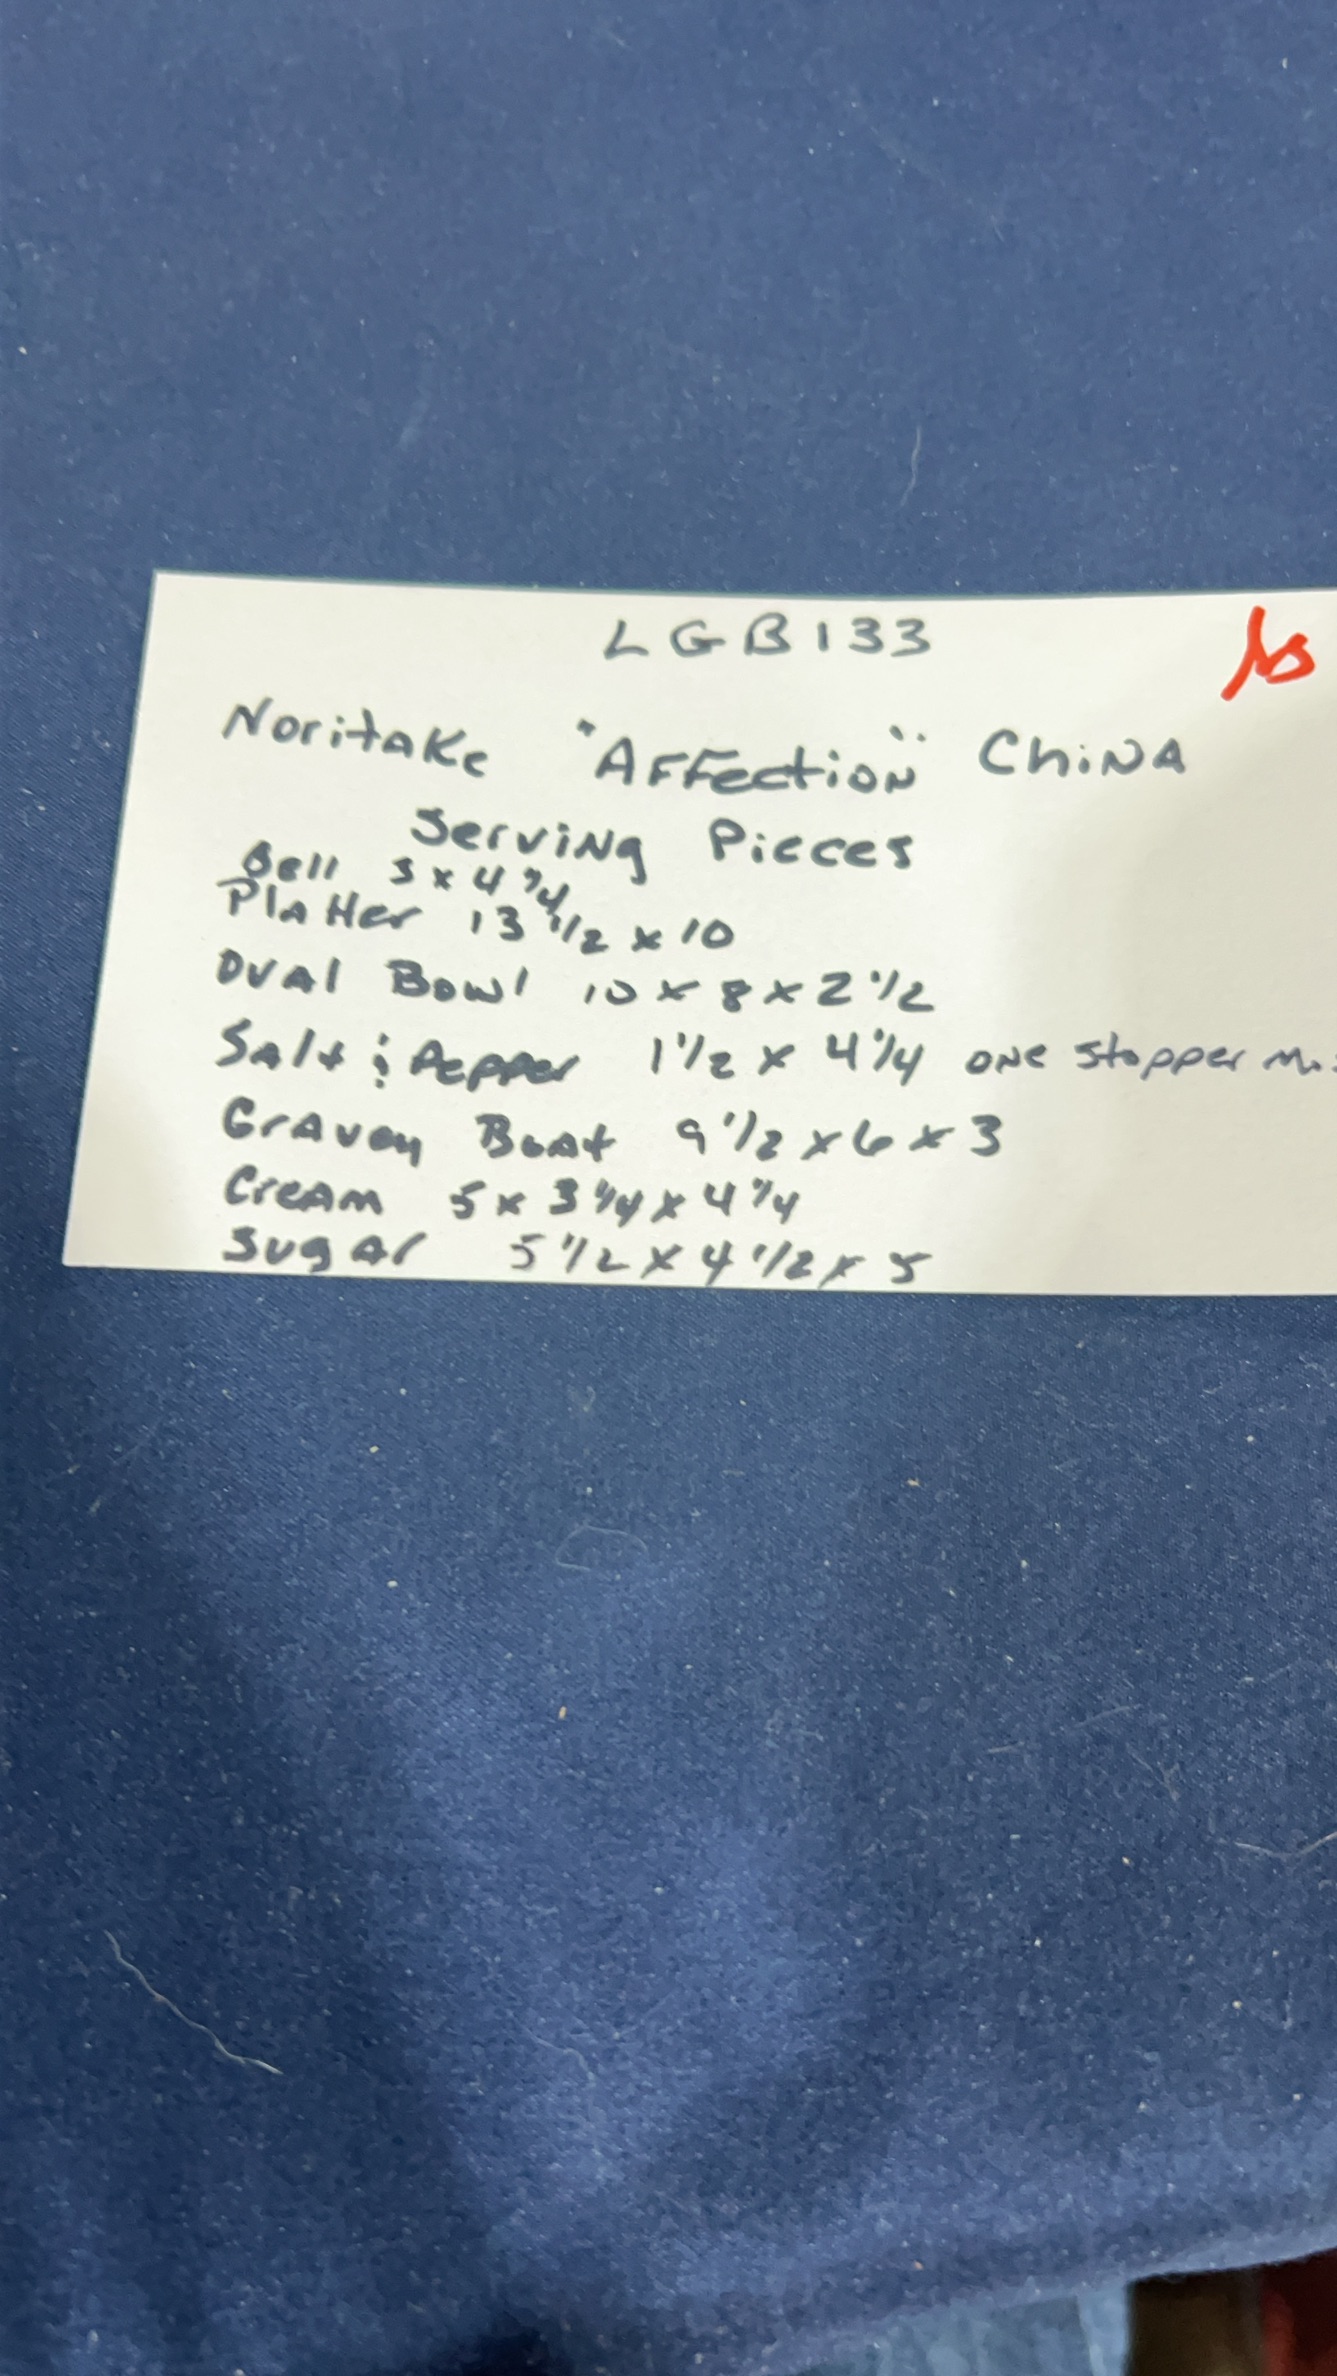 LGB133
Noritake "Affection" China
Serving Pieces
Bell 3 x 4 1/4
Platter 13 1/2 x 10
Oval Bowl 10 x 8 x 2 1/2
Salt & Pepper 1 1/2 x 4 1/4 one stopper
Gravey Boat 9 1/2 x 6 x 3
Cream 5 x 3 1/4 x 4 1/4
Sugar 5 1/2 x 4 1/2 x 5